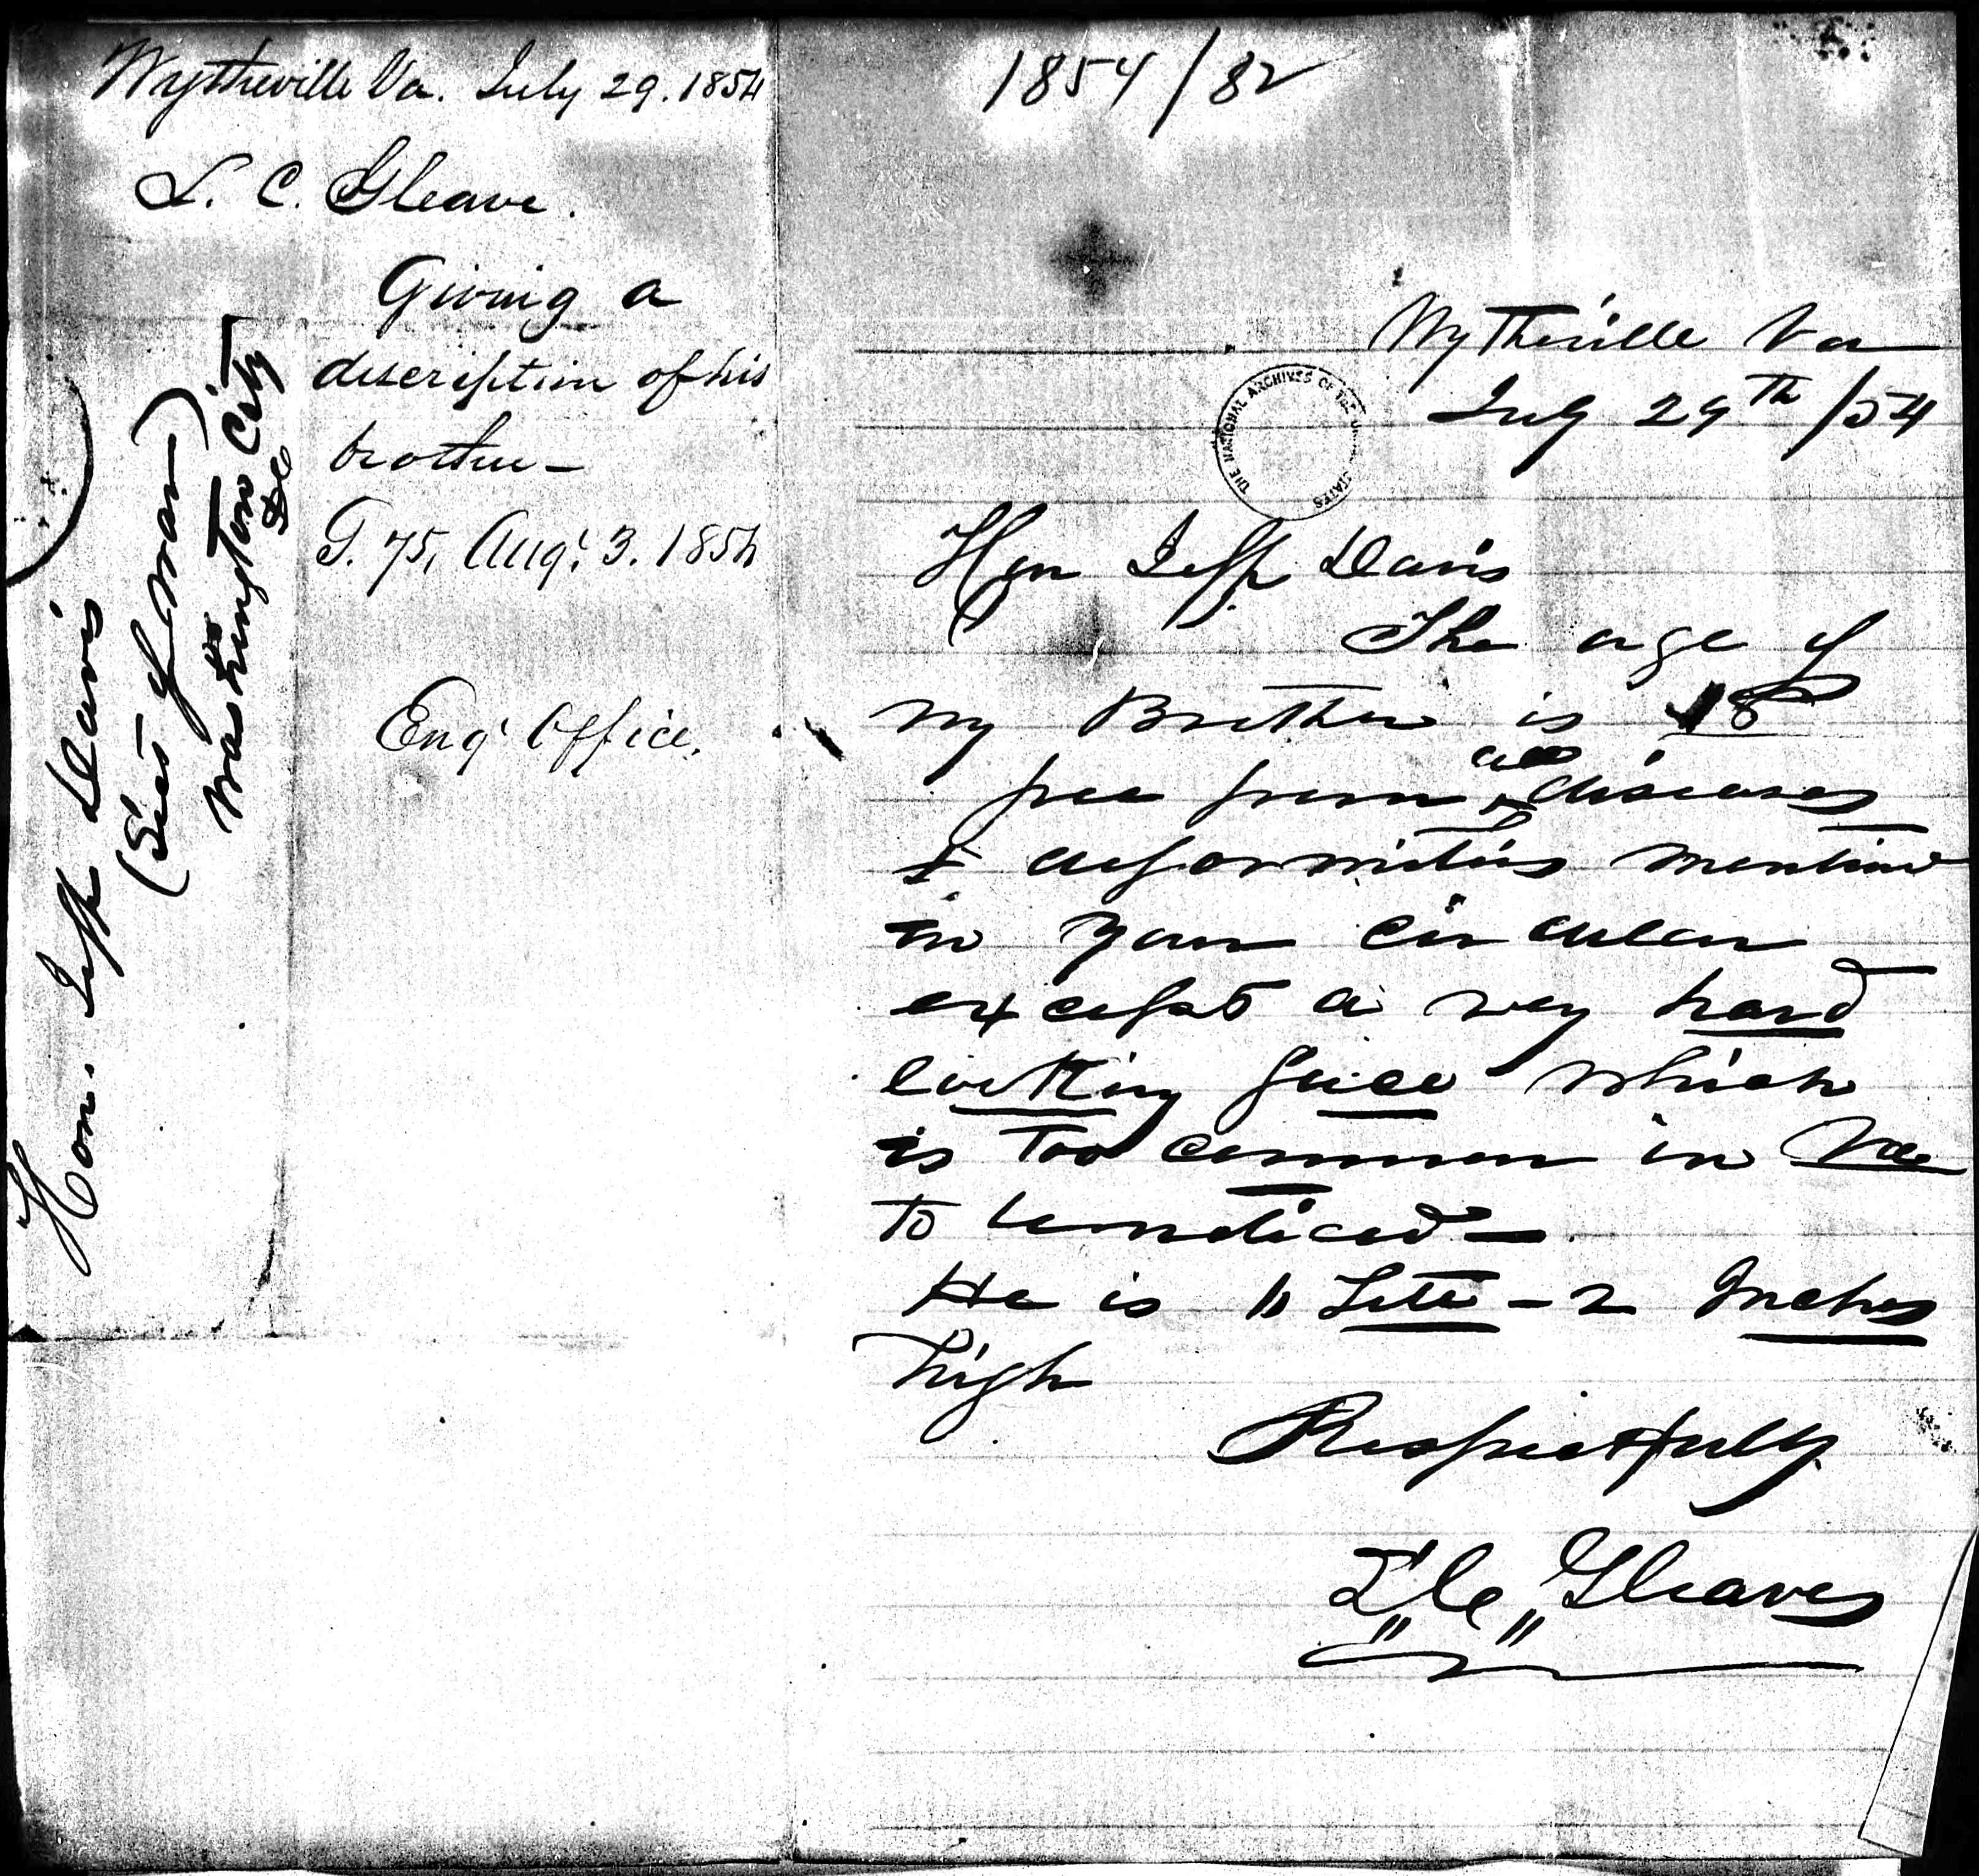 Wytheville Va. July 29. 1854
L. C. Gleave.
Giving a
description of his
brother—
G. 75, Augt. 3. 1854
Engr Office.
Hon. Jeff Davis
(Sec of War)
Washington City
DC
1854/82
THE NATIONAL ARCHIVES OF THE UNITED STATES
Wytheville Va
July 29th /54
Hon Jeff Davis
The age of
my Brother is 18
free from all diseases
& deformities mentioned
in your circular
except a very hard
looking face which
is too common in Va
to be noticed—
He is 5 feete - 2 Inches
high
Respectfully
L C Gleaves